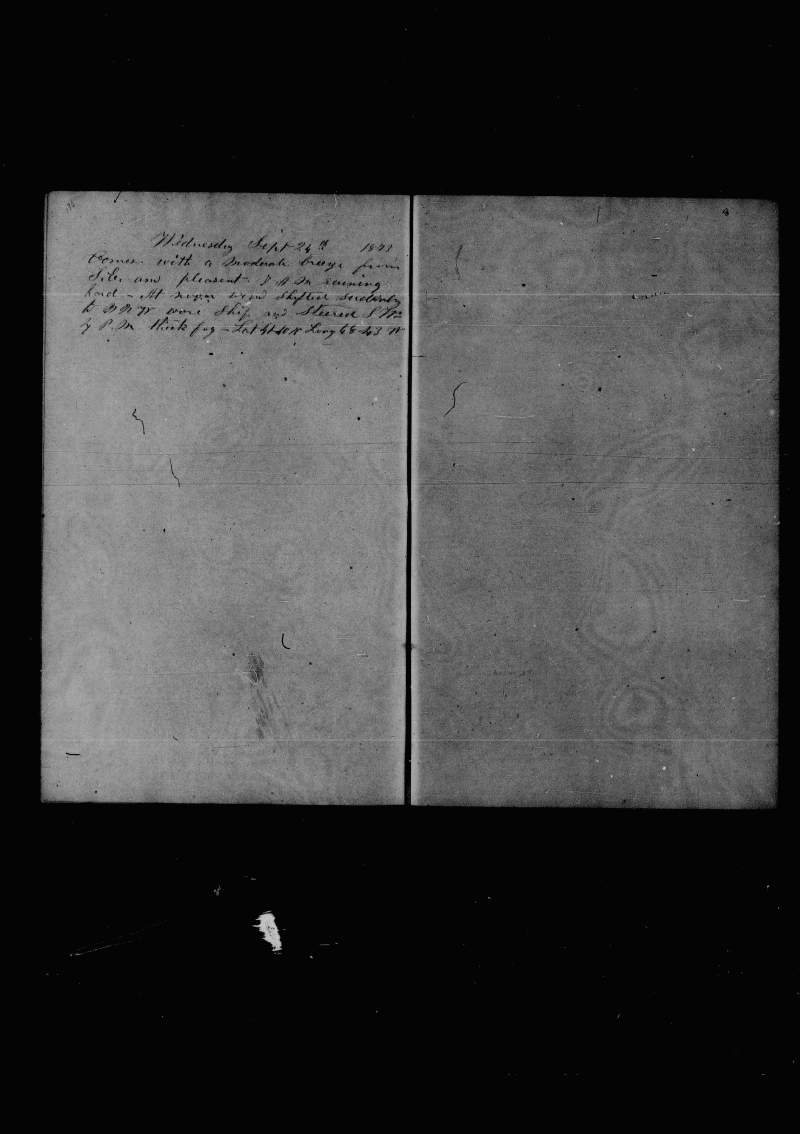 Wednesday Sept 24th 1873
Comes with a moderate breeze from
and pleasant - 8 A M raining
hard - At noon wind shifted suddenly
to N N W wore Ship and Steered
P. M. thick fog - Lat N Long 68-43 W